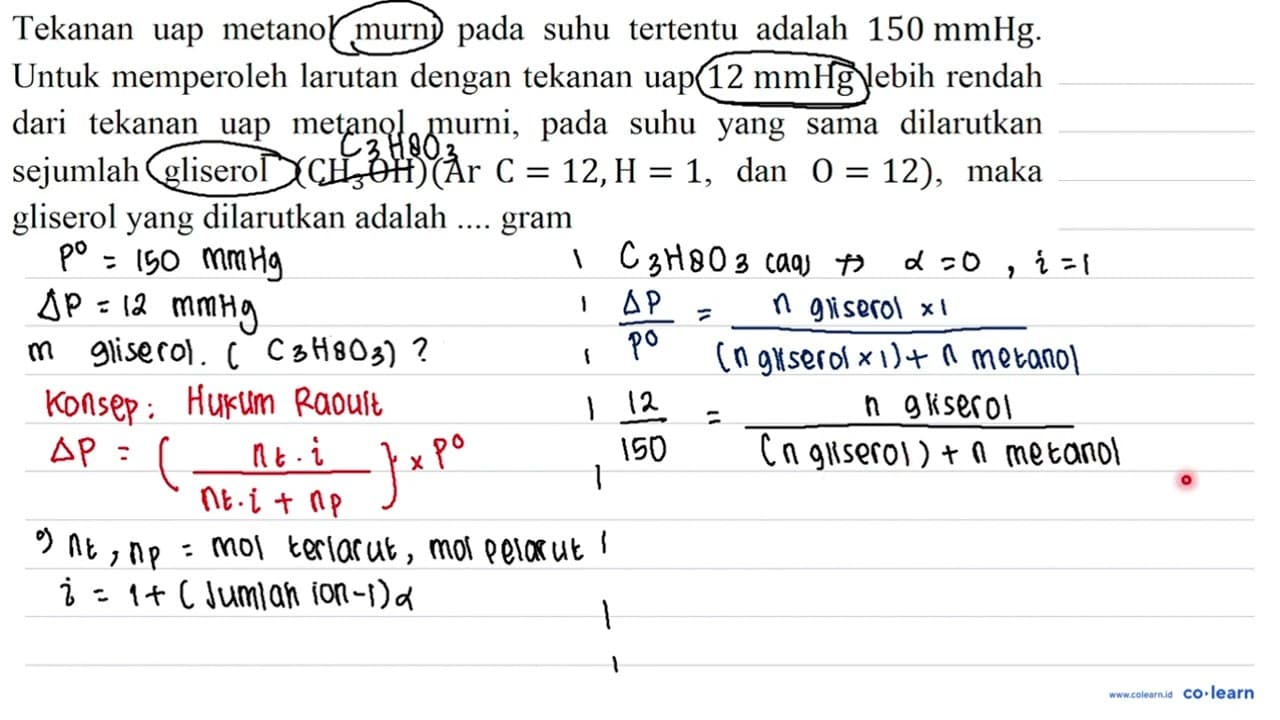 Tekanan uap metanol murni pada suhu tertentu adalah 150 mmHg.
Untuk memperoleh larutan dengan tekanan uap 12 mmHg lebih rendah
dari tekanan uap metanol murni, pada suhu yang sama dilarutkan
C3H8O3
sejumlah gliserol (CH3OH)(Ar C = 12, H = 1, dan O = 12), maka
gliserol yang dilarutkan adalah .... gram
P° = 150 mmHg
ΔP = 12 mmHg
m gliserol. ( C3H8O3) ?
Konsep : Hukum Raoult
ΔP = ( nt . i / nt . i + np } x P°
•) nt , np = mol terlarut, mol pelarut
i = 1 + ( Jumlah ion-1)α
C3H8O3 (aq) ↛ α = 0 , i = 1
ΔP / P° = n gliserol x 1 / (n gliserol x 1) + n metanol
12 / 150 = n gliserol / (n gliserol) + n metanol
www.colearn.id co·learn